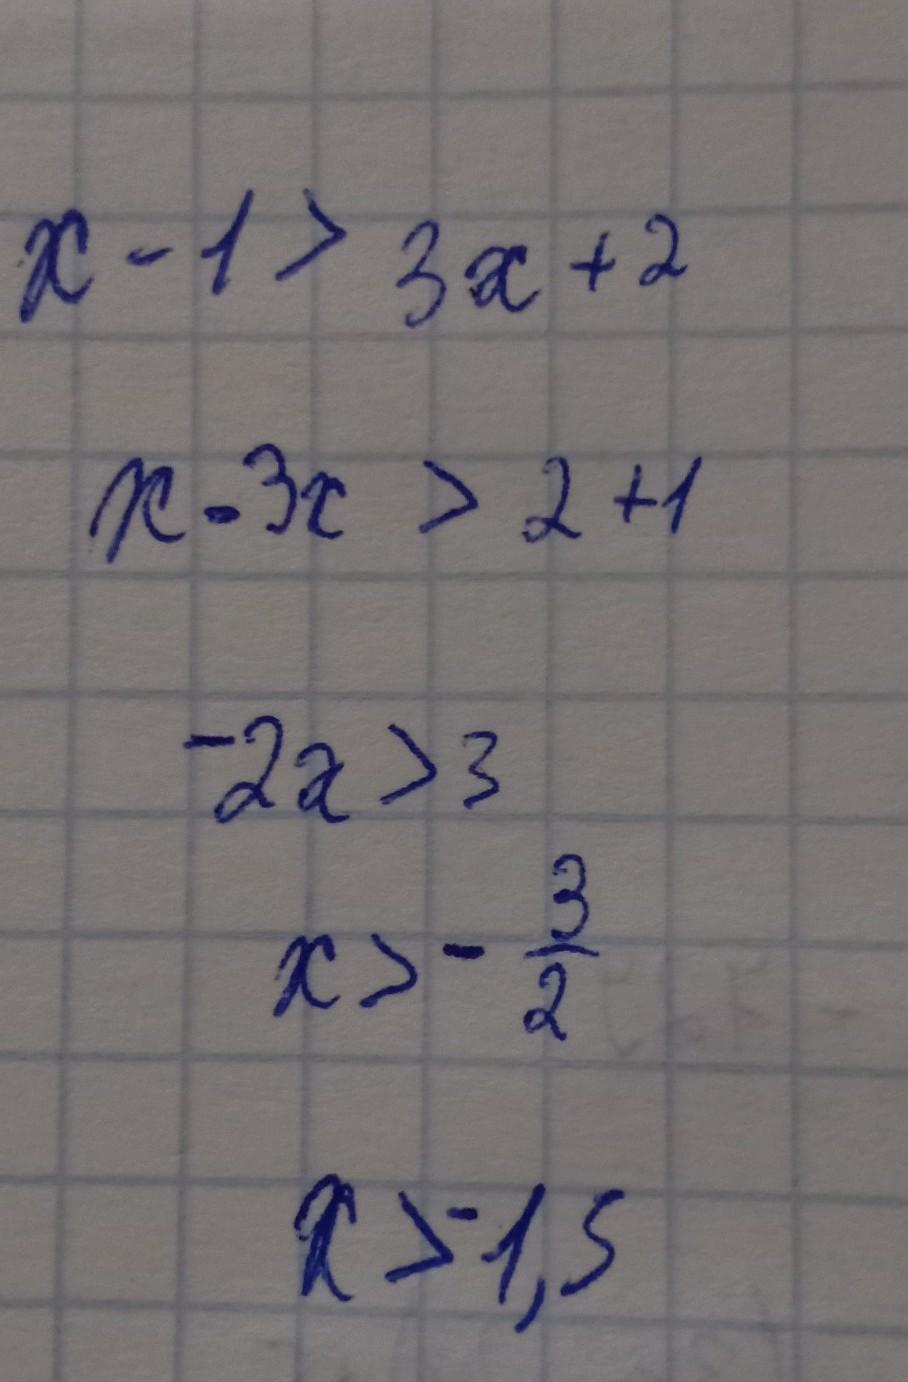 x - 1 > 3x + 2
x - 3x > 2 + 1
-2x > 3
x > - 3/2
x > -1,5